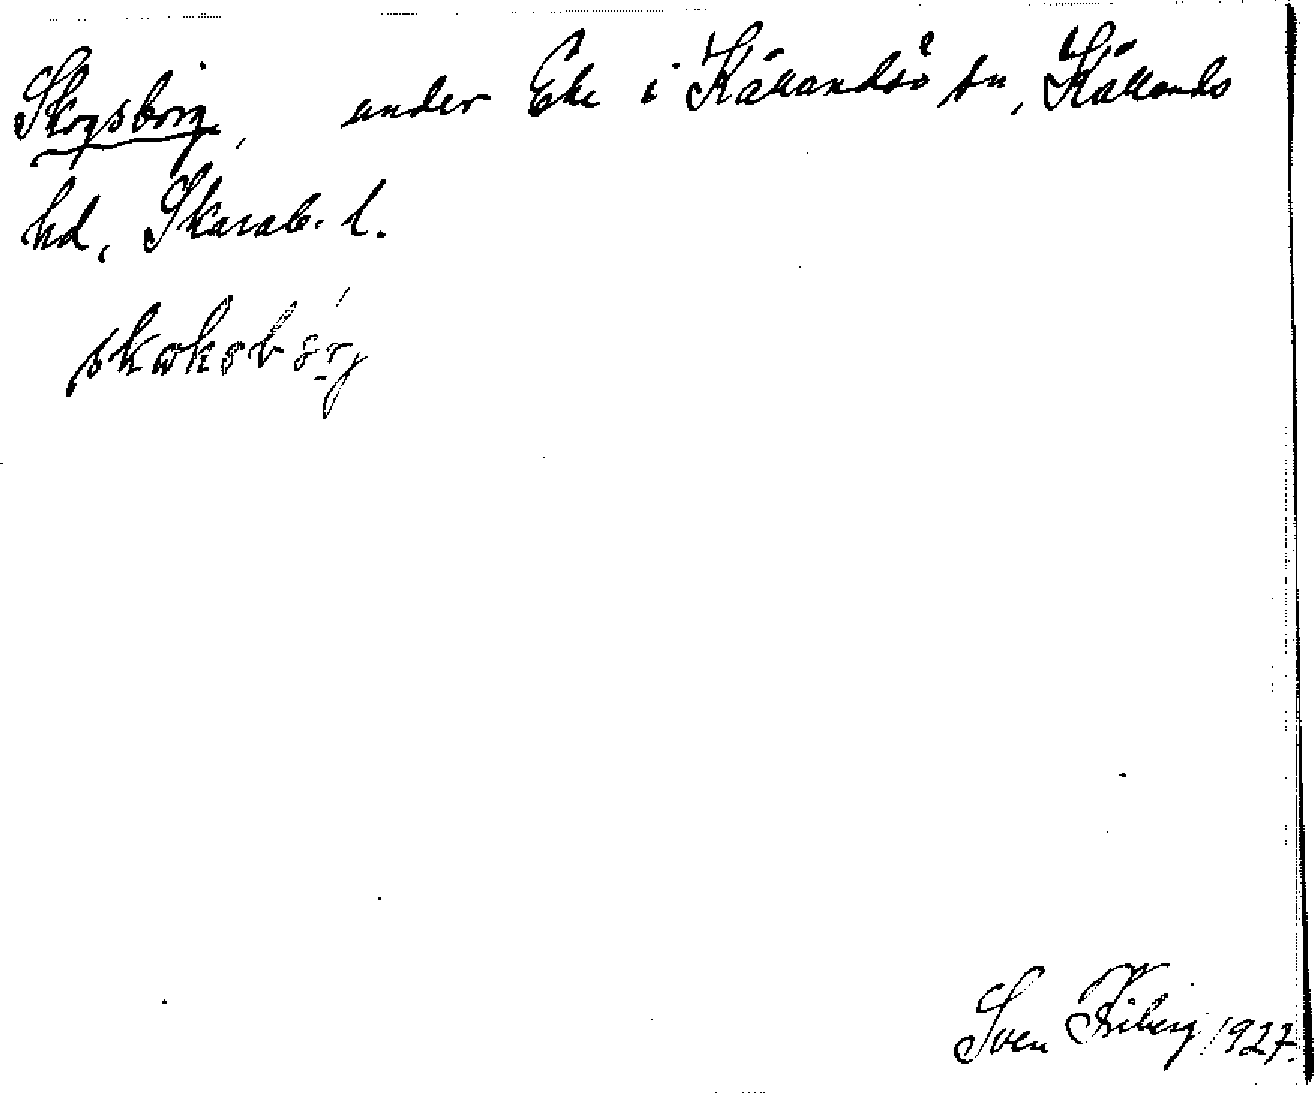 Skogsborg, under Eke i Källandsö sn, Kållands
hd, Skarab. l.
skoksbórj
Sven Kiberg 1927.